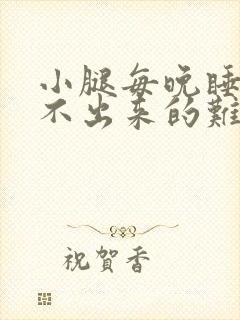 小腿每晚睡
不出来的難
祝賀香